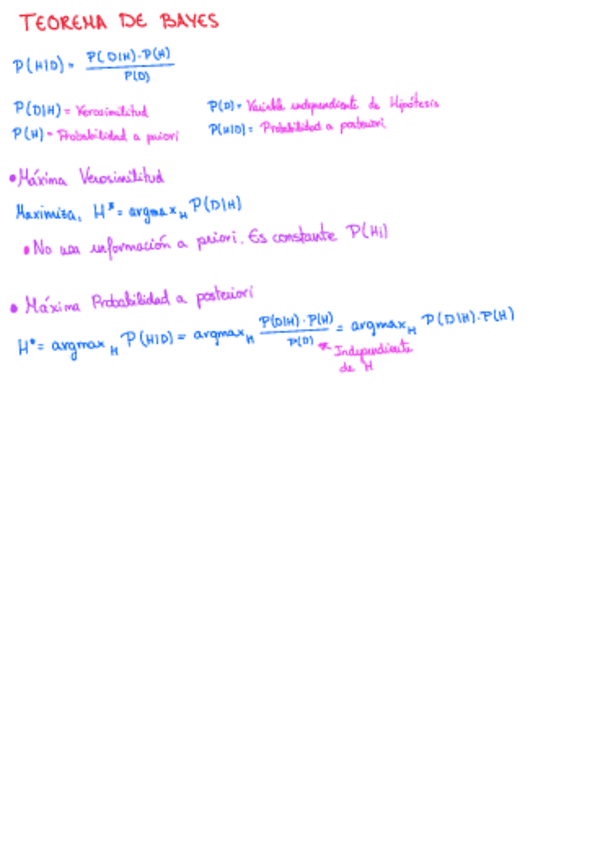 TEOREMA DE BAYES
P(H|D) = P(D|H)·P(H) / P(D)
P(D|H) = Verosimilitud P(D) = Variable independiente de Hipótesis
P(H) = Probabilidad a priori P(H|D) = Probabilidad a posteriori
• Máxima Verosimilitud
Maximiza, H* = argmax_H P(D|H)
• No usa información a priori. Es constante P(Hi)
• Máxima Probabilidad a posteriori
H* = argmax_H P(H|D) = argmax_H P(D|H)·P(H) / P(D) = argmax_H P(D|H)·P(H)
Independiente
de H